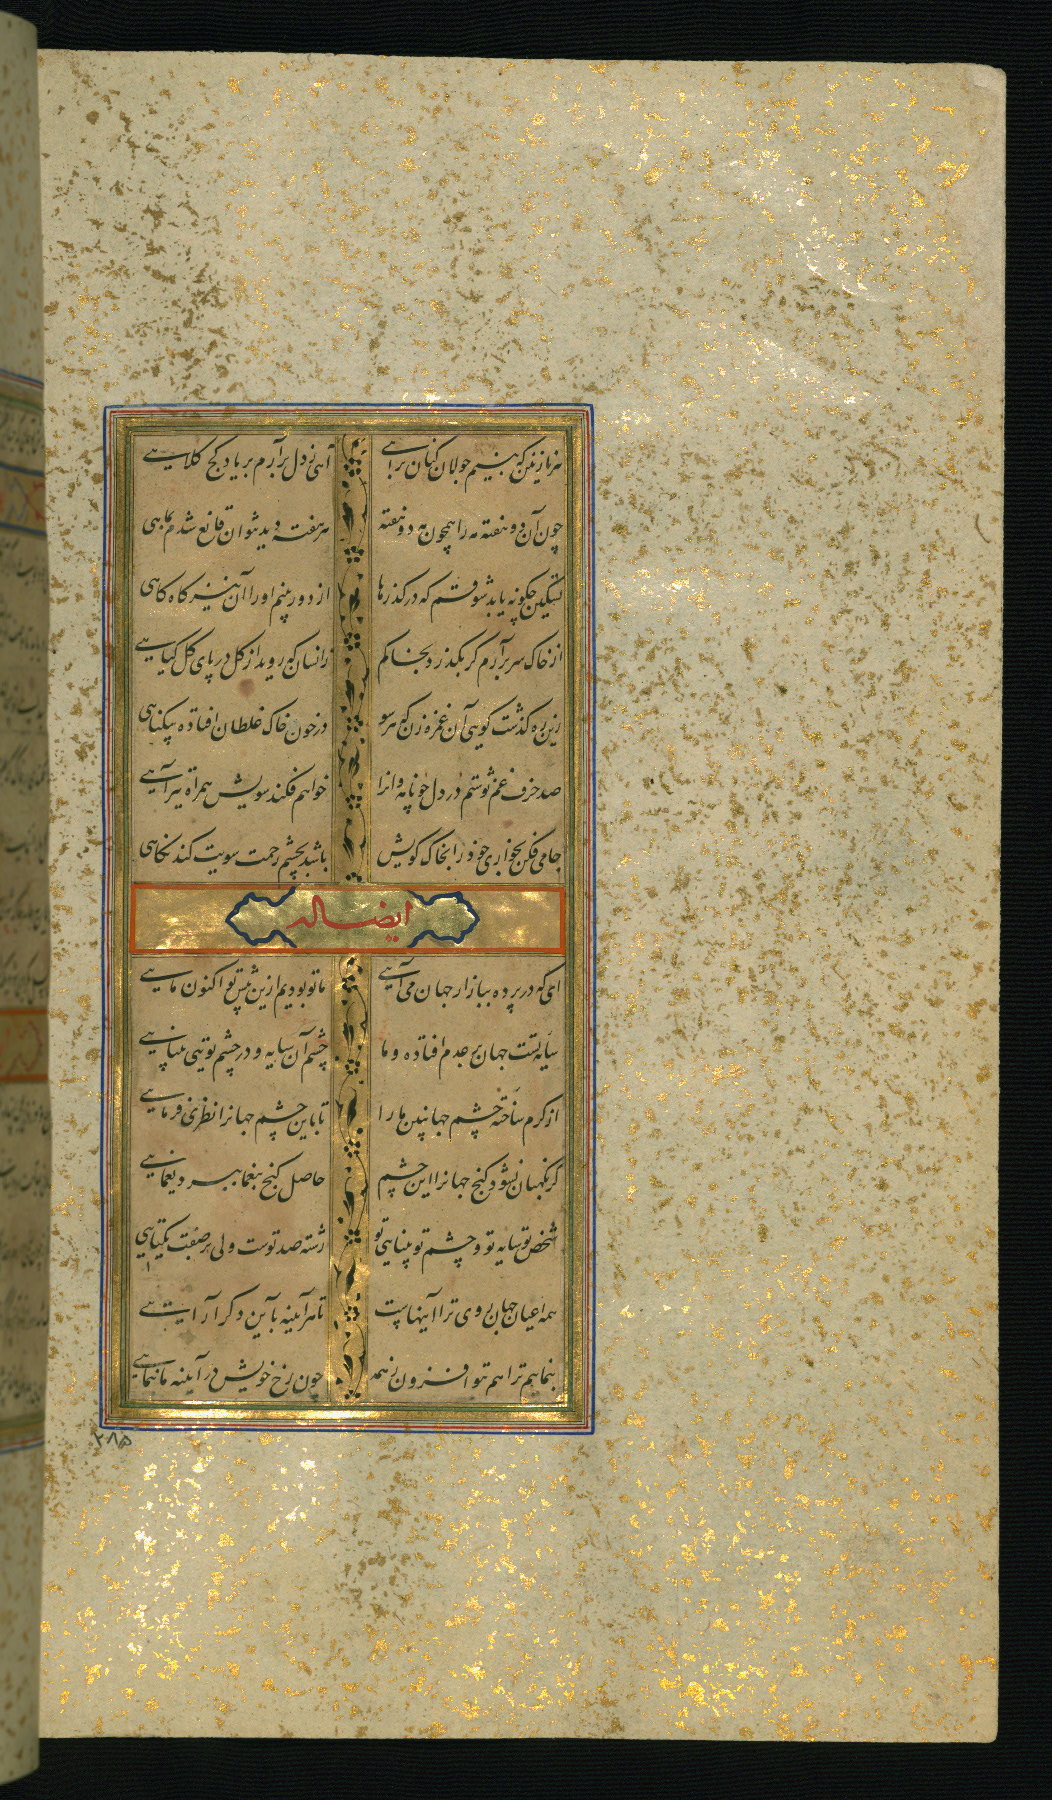 هر نازنین که بینم جولان کنان براهی آهی ز دل برآرم بر یاد کج کلاهی
چون آن دو هفته مه را همچون مه دو هفته هر هفته دید نتوان قانع شدم بماهی
تسکین چگونه یابد شوقم که در گذرها از دور بینم او را آن نیز گاه گاهی
از خاک سر برآرم گر بگذرد بخاکم زانسان که روید از گل در پای گل گیاهی
زین ره گذشت گویی آن غمزه زن که هر سو در خون و خاک غلطان افتاده بیگناهی
صد حرف غم نوشتم در دل خونابه وانرا خواهم فکند سویش همراه تیر آهی
جامی فکن بخواری خود را بخاک کویش باشد بچشم رحمت سویت کند نگاهی
ایضا له
ای که در پرده ببازار جهان می آیی ما تو بودیم ازین پیش تو اکنون مایی
سایه تست جهان بر عدم افتاده و ما چشم آن سایه و در چشم تویی بینایی
از کرم ساخته چشم جهان بین ما را تا باین چشم جهانرا نظری فرمایی
گر نگهبان نشود گنج جهانرا این چشم حاصل گنج بیغما ببرد یغمایی
شخص تو سایه تو و چشم تو بینایی تو رشته صد توست ولی بر صفت یکتایی
همه اعیان جهان روی ترا آینهاست تا هر آیینه بآیین دگر آرایی
بنماییم ترا هم تو افزون ز همه چون رخ خویش در آیینه ما بنمایی
۲۸۵